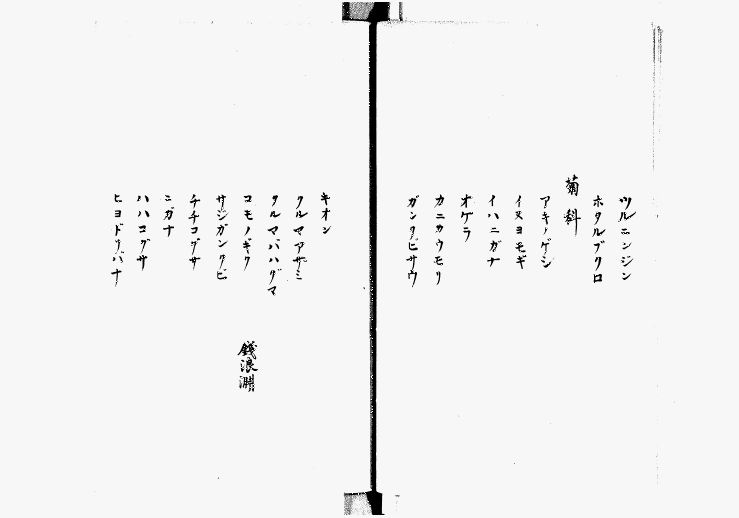 ツルニンジン
ホタルブクロ
菊科
アキノゲシ
イヌヨモギ
イハニガナ
オケラ
カニカウモリ
ガンクビサウ
キオン
クルマアザミ
クルマバハグマ
コモノギク
サジガンクビ
チチコグサ
ニガナ
ハハコグサ
ヒヨドリバナ
錢浪淵